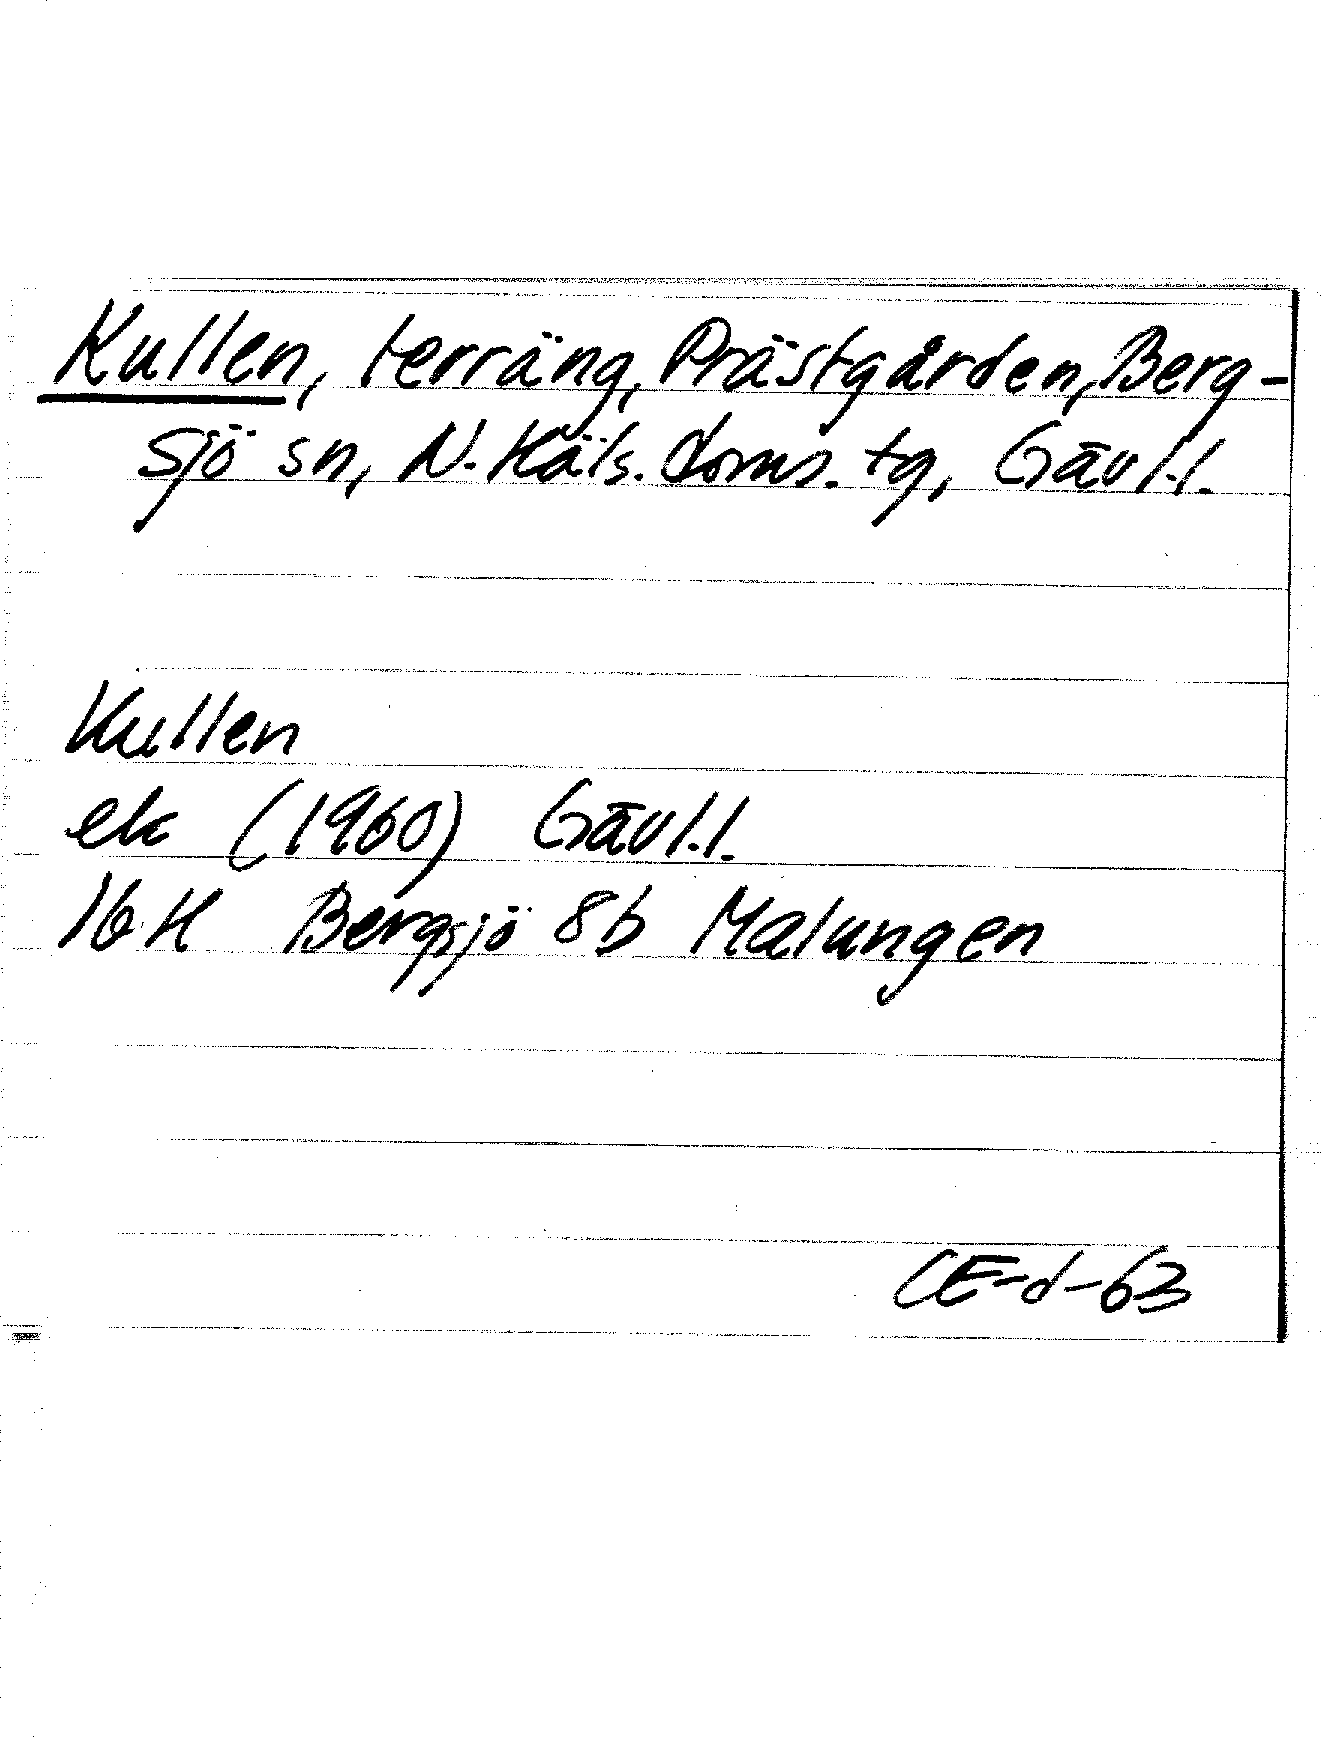 Kullen, terräng, Prästgården, Berg-
sjö sn, N. Häls. doms. tg, Gävl.l.
Kullen
ek (1960) Gävl.l.
16 H Bergsjö 8b Malungen
CE-d-63